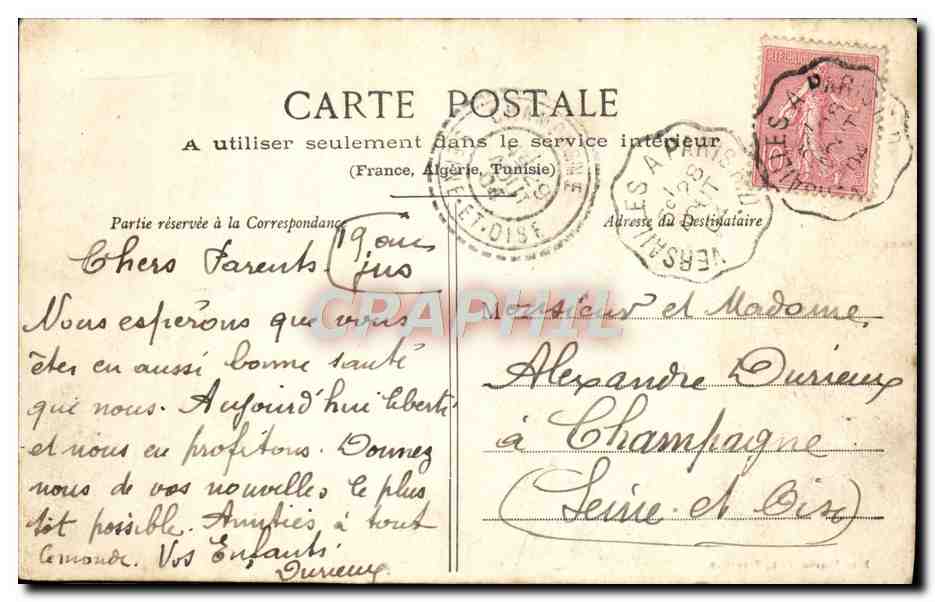 CARTE POSTALE
A utiliser seulement dans le service intérieur
(France, Algérie, Tunisie)
Partie réservée à la Correspondance
Adresse du Destinataire
Chers Parents.
Nous espérons que vous
êtes en aussi bonne santé
que nous. Aujourd'hui liberté
et nous en profitons. Donnez
nous de vos nouvelles le plus
tôt possible. Amitiés à tout
le monde. Vos Enfants
Durieux
Monsieur et Madame
Alexandre Durieux
à Champagne
(Seine et Oise)
VERSAILLES A PARIS R.D
VERSAILLES A PARIS R.D
SEINE-ET-OISE
CHAMPAGNE
GRAPHIL